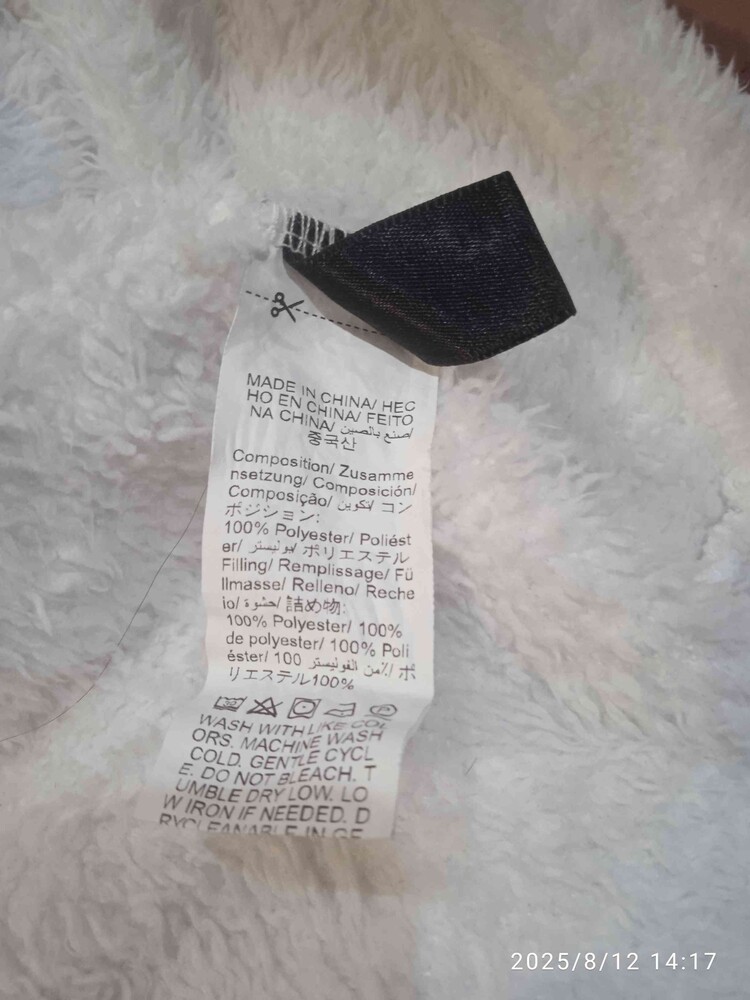 MADE IN CHINA/ HEC
HO EN CHINA/ FEITO
NA CHINA/ صنع بالصين/
중국산
Composition/ Zusamme
nsetzung/ Composición/
Composição/ تكوين/ コン
ポジション:
100% Polyester/ Poliést
er/ بوليستر/ ポリエステル
Filling/ Remplissage/ Fü
llmasse/ Relleno/ Reche
io/ حشوة/ 詰め物:
100% Polyester/ 100%
de polyester/ 100% Poli
éster/ 100 ٪من الفوليستر/ ポ
リエステル100%
WASH WITH LIKE COL
ORS. MACHINE WASH
COLD. GENTLE CYCL
E. DO NOT BLEACH. T
UMBLE DRY LOW. LO
W IRON IF NEEDED. D
RYCLEANABLE IN GE
2025/8/12 14:17